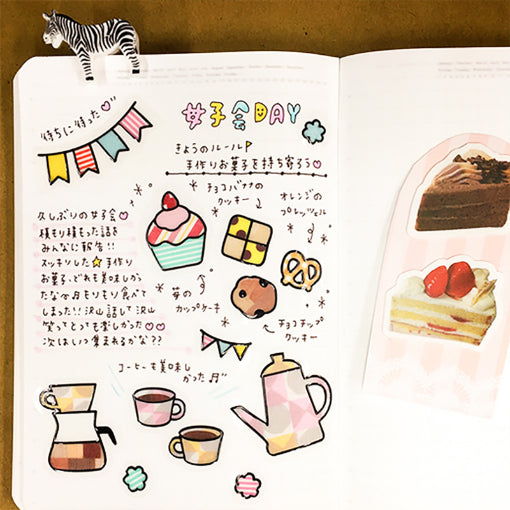 待ちに待った♡
女子会DAY
きょうのルール
手作りお菓子を持ち寄ろう♡
チョコバナナの
クッキー
オレンジの
プレッツェル
久しぶりの女子会♡
積もり積もった話を
みんなに報告!!
スッキリした★手作り
お菓子、どれも美味しか
たな〜♪もりもり食べて
しまった!!沢山話して沢山
笑ってとても楽しかった♡♡
次はいつ集まれるかな??
苺の
カップケーキ
チョコチップ
クッキー
コーヒーも美味し
かった♬"